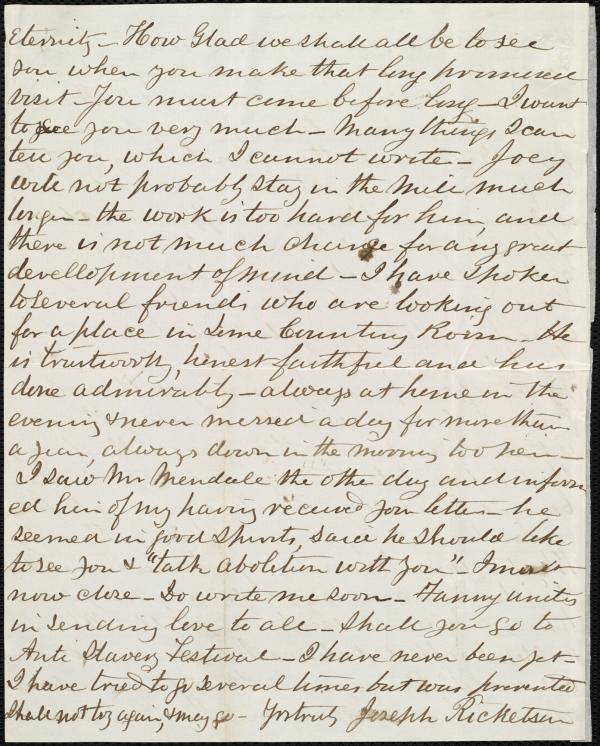 Eternity - How Glad we shall all be to see
you when you make that long promised
visit - You must come before long - I want
to see you very much - Many things I can
tell you, which I cannot write - Joey
will not probably stay in the Mill much
longer - the work is too hard for him, and
there is not much chance for any great
devellopment of mind - I have spoken
to several friends who are looking out
for a place in some Counting Room - He
is trustworthy, honest faithful and has
done admirably - always at home in the
evening & never missed a day for more than
a year, always down in the morning too
I saw Mr Mendale the othe day and inform
ed him of my having received your letter - he
seemed in good spirits, said he should like
to see you & "talk abolition with you" I must
now close - Do write me soon - Fanny unites
in sending love to all - Shall you go to
Anti Slavery Festival - I have never been yet -
I have tried to go several times but was prevented
shall not try again, & may go - Yrs truly Joseph Ricketson